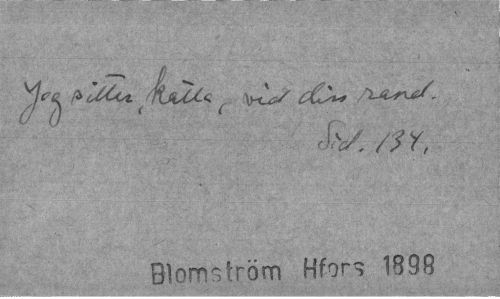 Jag sitter, källa, vid din rand.
Sid. 134.
Blomström Hfors 1898